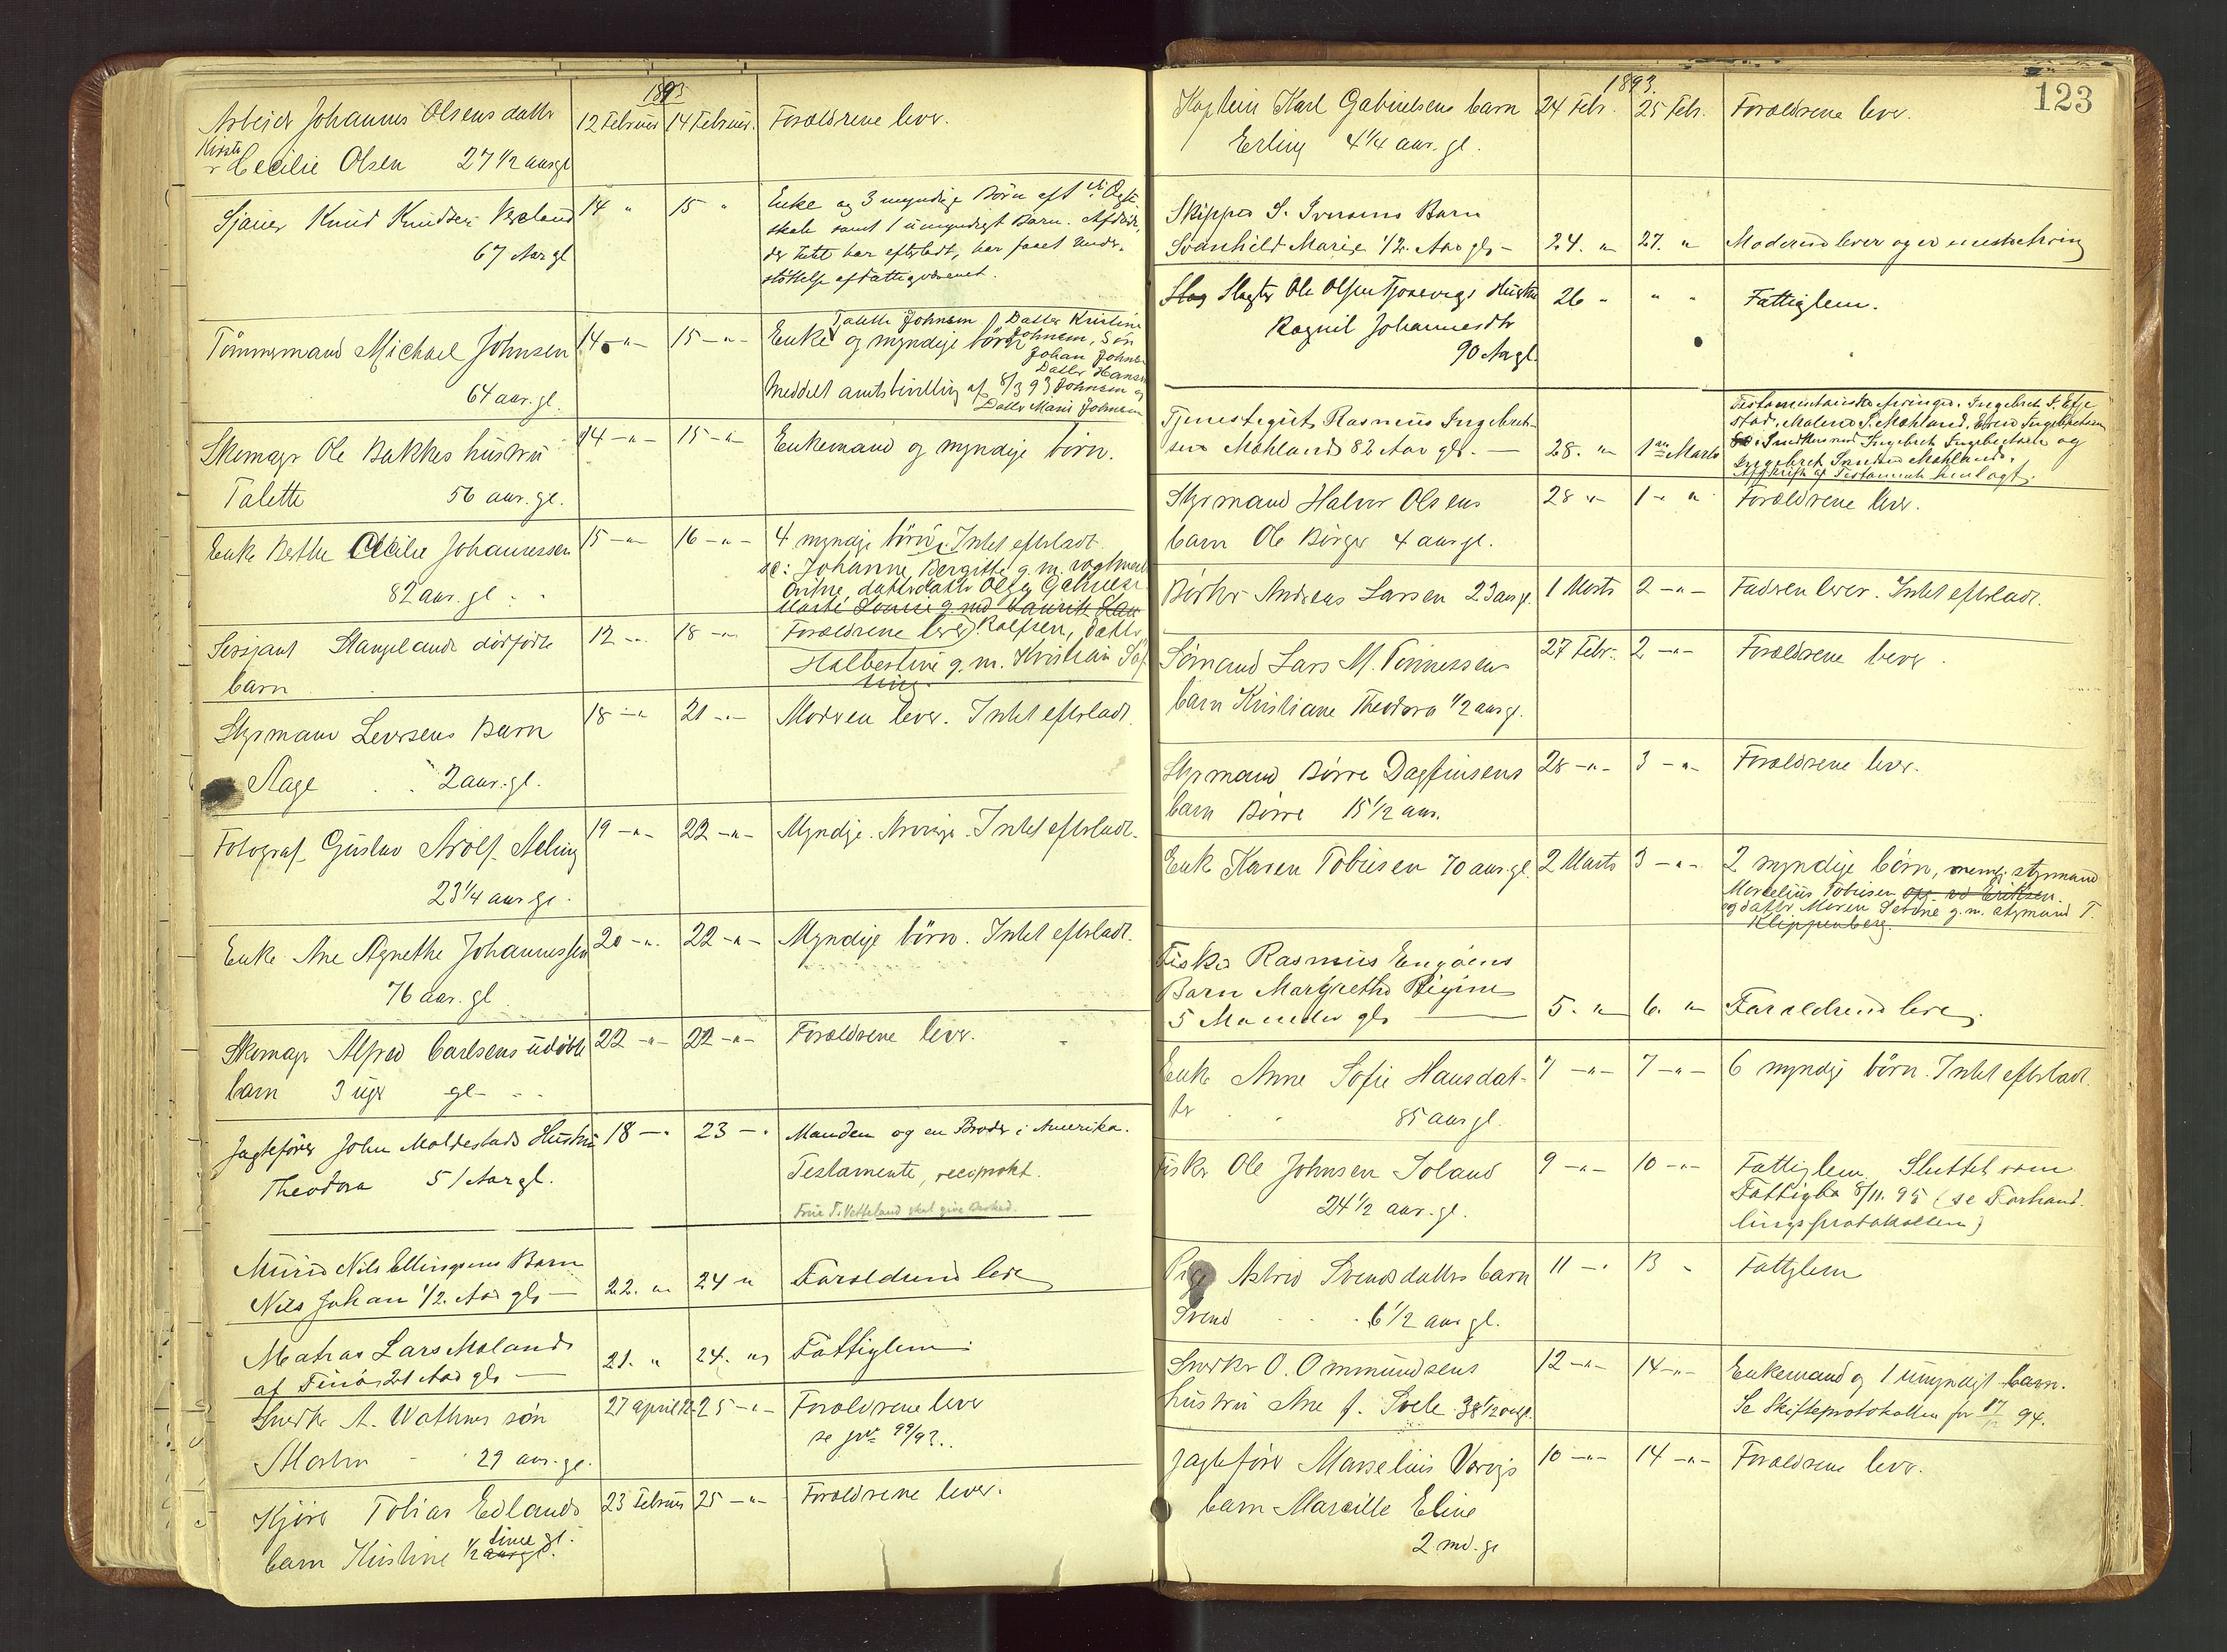 1893
Arbeider Johannes Olsens datter 12 Februar 14 Februar. Forældrene lever.
Kirste
Cecilie Olsen 27 1/2 aar gl
Sjauer Knud Knudsen 14 " 15 " Enke og 3 myndige Børn af
67 Aar gl
skab samt 1 umyndigt Barn. Afdøde,
der Intet har efterladt, har faaet Under-
støttelse af Fattigvæsenet.
Talette Johnsen Datter Kristine
Tømmermand Michael Johnsen 14 -"- 15 -"- Enke og myndige børn Johnsen, Søn
Johan Johnsen
Datter Hansine
64 aar. gl. Meddelt amtsbevilling af 8/3 93 Johnsen og
Datter Marie Johnsen
Skomager Ole Bakkes hustru 14 -"- 15 -"- Enkemand og myndige børn.
Talette 56 aar. gl.
Enke Berthe Cecilie Johannessen 15 -"- 16 -"- 4 myndige børn. Intet efterladt.
82 aar. gl.
sc: Johanne Bergitte g. m. vogtmand
datterdatter Olga Gabrielsen
Sersjant Stangelands dødfødte 12 -"- 18 -"- Forældrene lever Rolfsen, datter
barn
Halbertine g. m. Kristian
Styrmand Leversens Barn 18 -"- 21 -"- Moderen lever. Intet efterladt.
Aage 2 aar. gl.
Fotograf Gustav Adolf Aeling 19 -"- 22 -"- Myndige Arvinge. Intet efterladt.
23 1/4 aar gl.
Enke Ane Agnethe Johannessen 20 -"- 22 -"- Myndige børn. Intet efterladt.
76 aar. gl.
Skomager Alfred Carlsens udøbte 22 -"- 22 -"- Forældrene lever.
barn 3 uger gl
Jagtefører John Moldestads Hustru 18 -"- 23 -"- Manden og en Broder i Amerika.
Theodora 51 Aar gl. Testamente, reciprokt.
Frue T. Vetteland skal give Besked.
Murer Nils Ellingsens Barn
Nils Johan 1/2 Aar gl. 22. " 24 " Forældrene lever
Matros Lars Moland
af Finö 21 Aar gl. 21. " 24. " Fattiglem.
Snedker A. Wathnes søn 27 april 92 25 -"- Forældrene lever
Morten 29 aar. gl. se 99/92.
Kjører Tobias Edlands 23 Februar 25 -"- Forældrene lever.
time gl.
barn Kristine 1/2 aar gl.
123
1893.
Kaptein Karl Gabrielsens barn 24 Febr. 25 Febr. Forældrene lever.
Erling 4 1/4 aar. gl.
Skipper S. Iversens Barn
Svanhild Marie 1/2 Aar gl. 24. " 27. " Moderen lever og er enestearving
Slag Slagter Ole Olsen Tjosevigs Hustru 26 " " " Fattiglem.
Ragnil Johannesdtr
90 Aar gl.
Testamentariske arvinger. Ingebreth S. Eije
Tjenestegut Rasmus Ingebret-
stad, Malene S. Mæhland, Elen Ingebretsen
sen Mæhland 82 Aar gl. 28. " 1ste Marts Ingebret Ingebretsen og
Ingebret Mæhland.
Afskrift af Testamente henlagt.
Styrmand Halvor Olsens 28 -"- 1 -"- Forældrene lever.
barn Ole Børger 4 aar gl.
Bødker Andreas Larsen 23 aar gl. 1 Marts 2 -"- Faderen lever. Intet efterladt.
Sømand Lars M. Tønnessens 27 Febr. 2 -"- Forældrene lever.
barn Kristiane Theodora 1/2 aar gl.
Styrmand Børre Dagfinsens 28 -"- 3 -"- Forældrene lever.
barn Børre 15 1/2 aar.
Enke Karen Tobiesen 70 aar. gl. 2 Marts 3 -"- 2 myndige børn, nemlig styrmand
Marcelius Tobiesen
og datter Maren Severine g. m. styrmand T.
Klippenberg.
Fisker Rasmus Engøens
Barn Margrethe Regine
5 Maaneder gl. 5. " 6. " Forældrene lever.
Enke Anne Sofie Hansdat- 7 -"- 7 -"- 6 myndige børn. Intet efterladt.
ter 85 aar gl.
Fisker Ole Johnsen Soland 9 -"- 10 -"- Fattiglem. Sluttet som
24 1/2 aar. gl. Fattigbo 8/11. 95 (se Forhand-
lingsprotokollen)
Pige Astrid Svendsdatters barn 11 -"- 13 " Fattiglem
Svend 6 1/2 aar gl.
Snedker O. Ommundsens 12 -"- 14 -"- Enkemand og 1 umyndigt barn.
hustru Ane f. Soele 38 1/2 aar gl. Se Skifteprotokollen for 17/12 94.
Jagtefører Marselius Vorvigs 10 -"- 14 -"- Forældrene lever.
barn Marcille Eline
2 md. gl